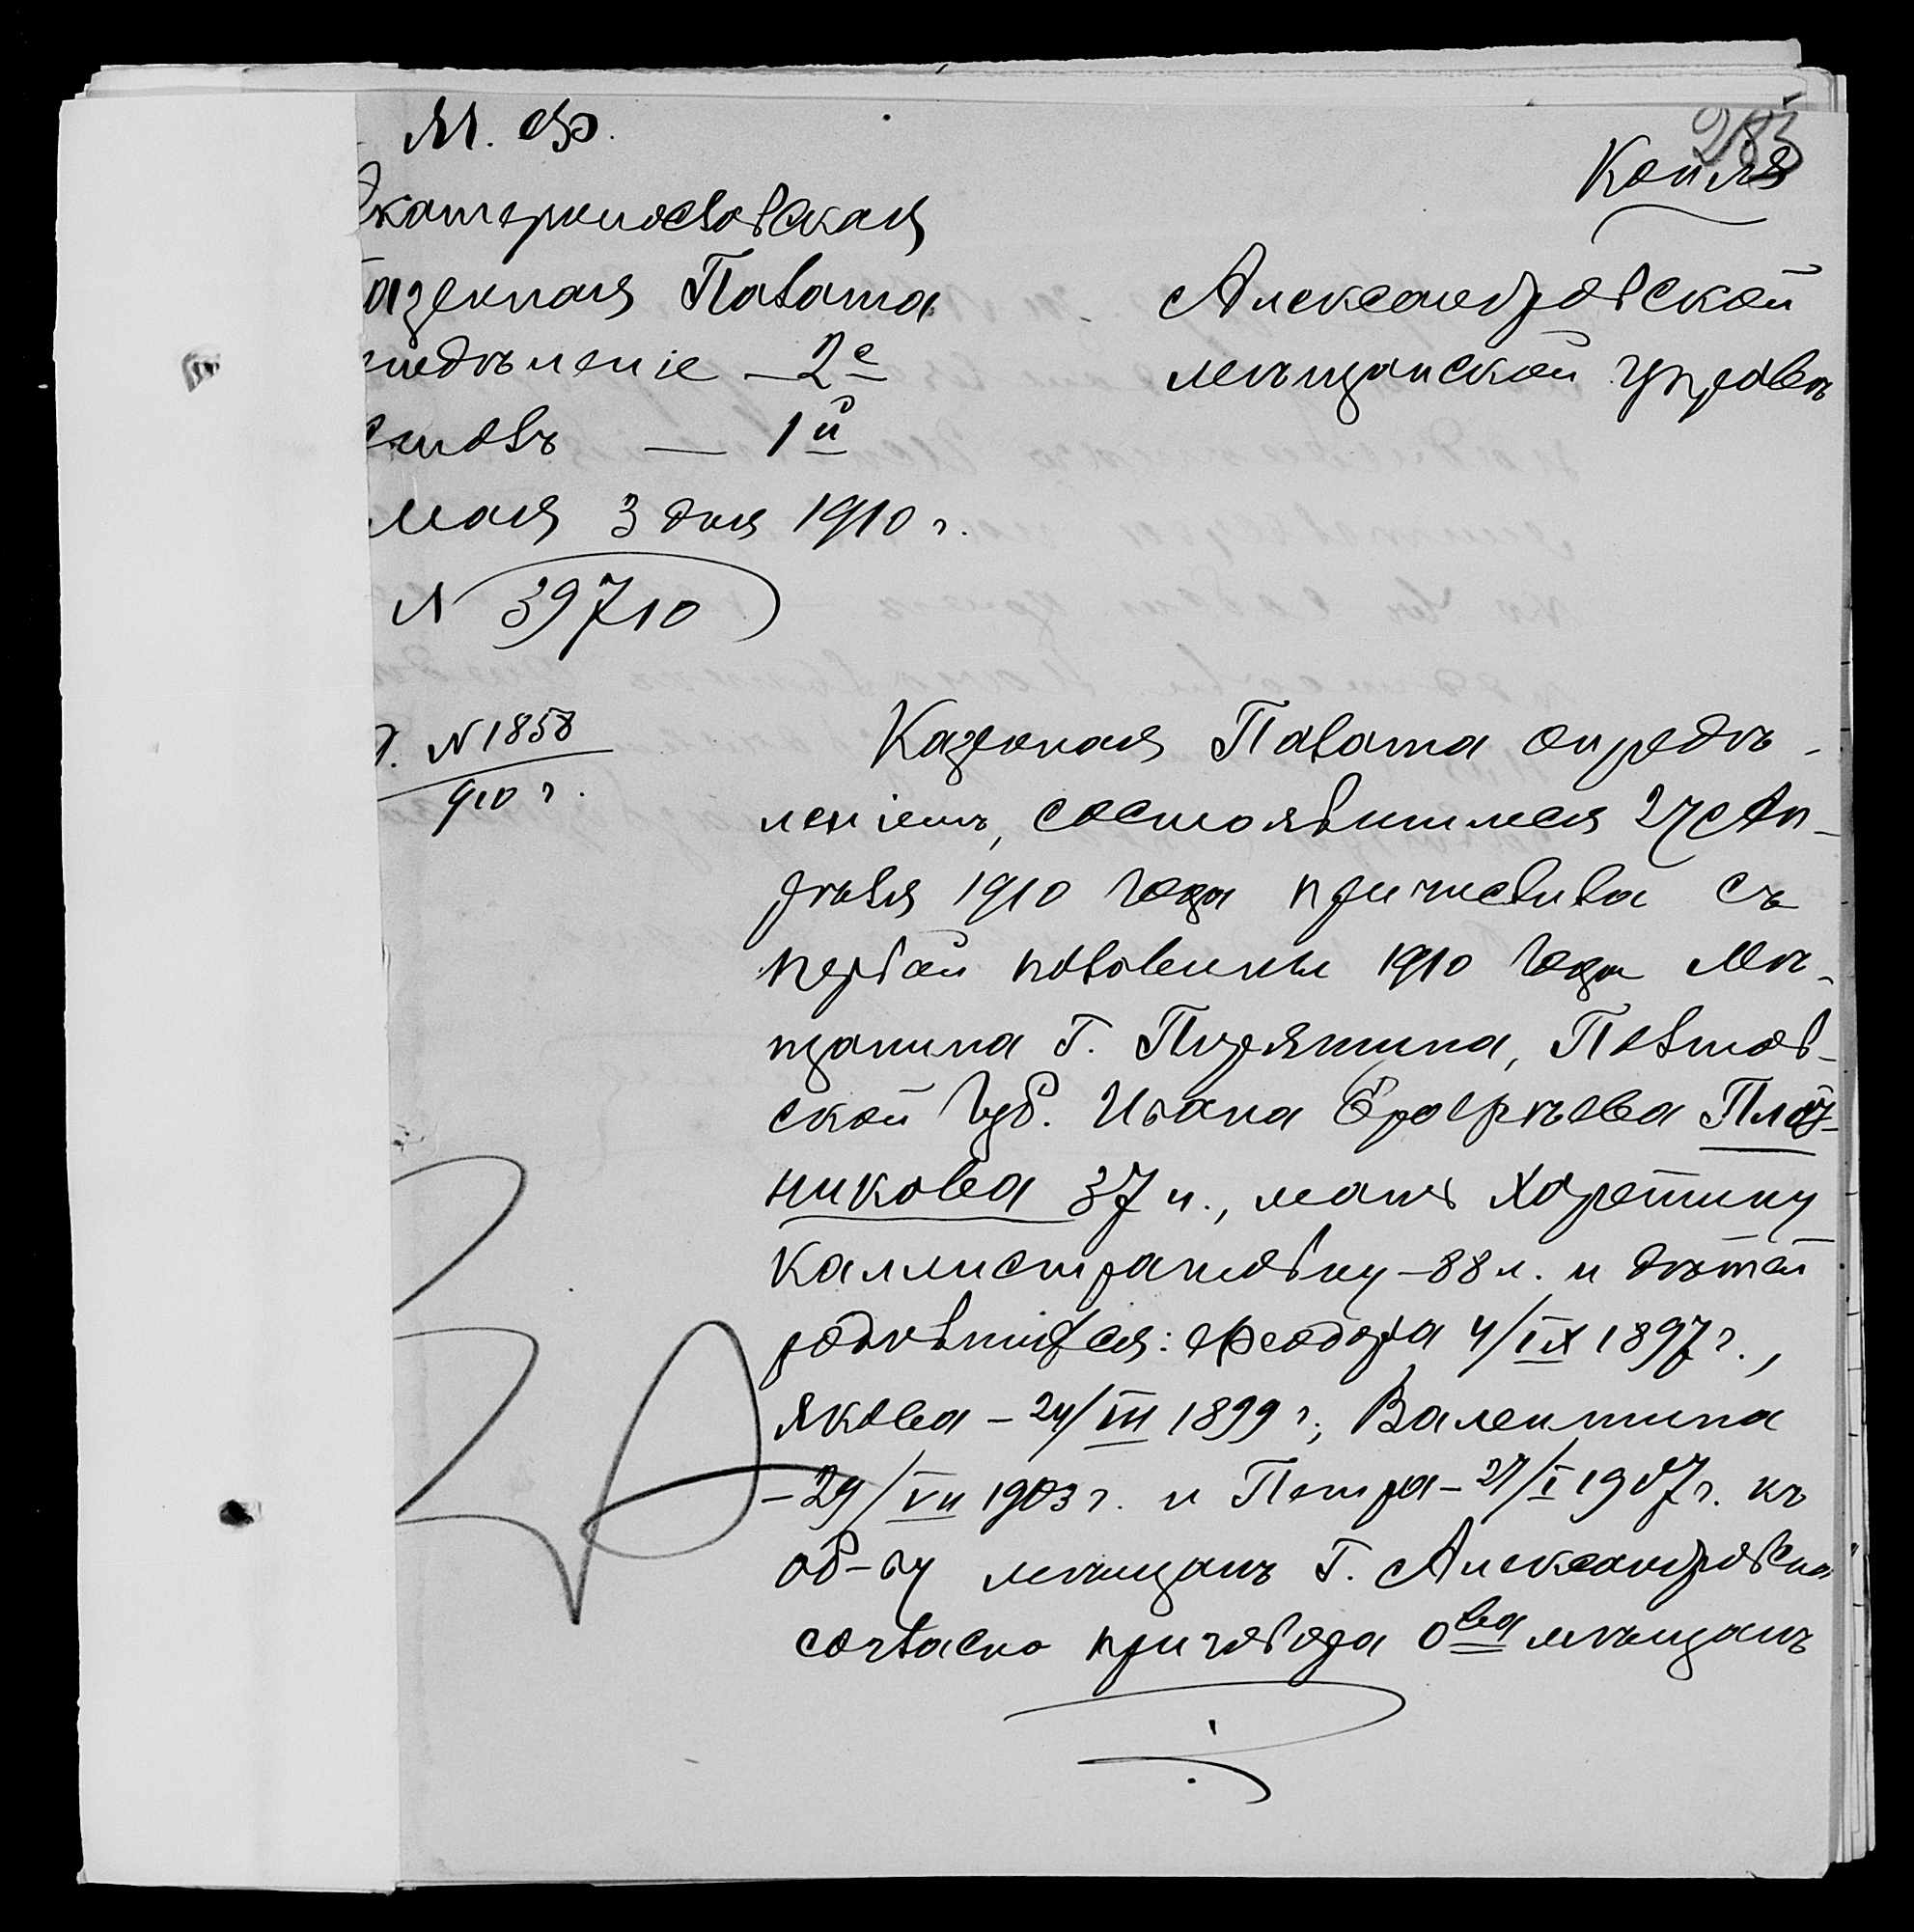 М. Ф.
283
Копія
Екатеринославская
Казенная Палата
Отдѣленіе – 2е
Столъ — 1й
Мая 3 дня 1910 г.
N 39710
Александровской
мѣщанской управѣ
д. N 1858
910 г.
Казенная Палата опредѣ-
леніемъ, состоявшимся 27 Ап-
рѣля 1910 года причислила съ
первой половины 1910 года мѣ-
щанина г. Пирятина, Полтав-
ской губ. Ивана Ерофѣева
никова 37 л., мать Харетину
Каллистратовну – 88 л. и дѣтей
родившихся: Феодора 4/IX 1897 г.,
Якова – 24/III 1899 г., Валентина
– 29/VII 1903 г. и Петра – 27/I 1907 г. къ
об-ву мѣщанъ г. Александровска
согласно приговора ова мѣщанъ